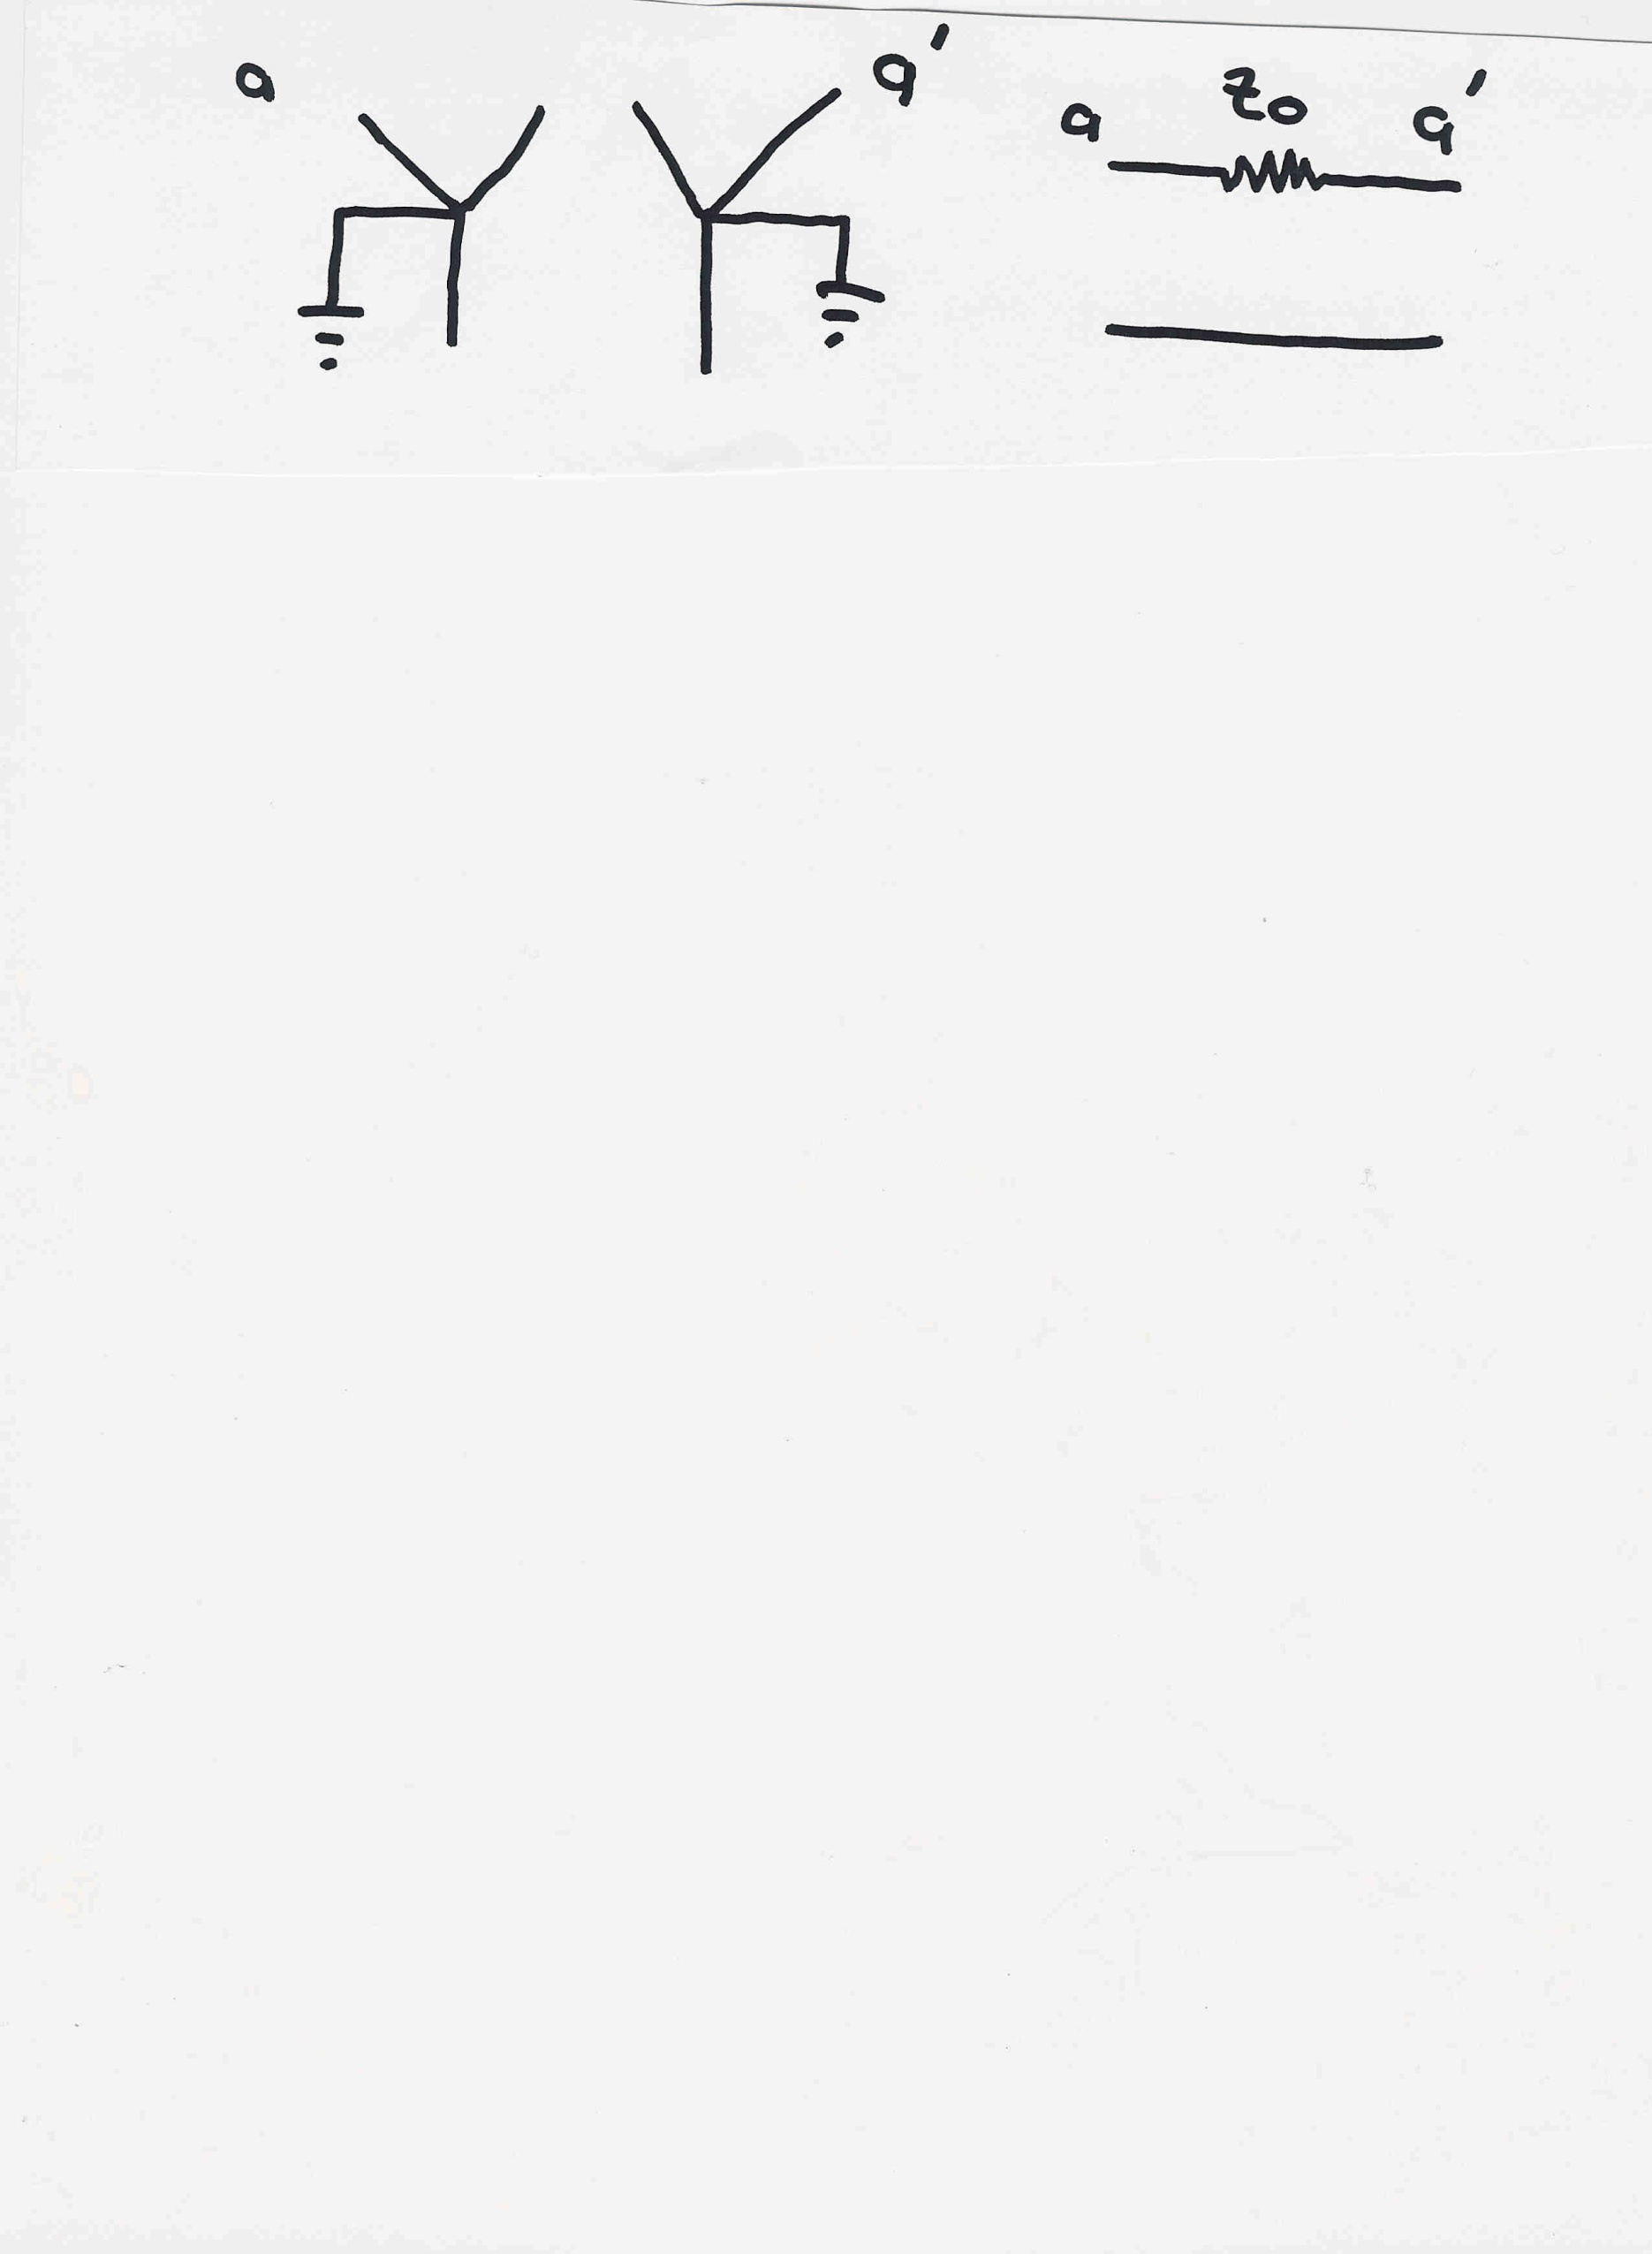 a a'
a z0 a'